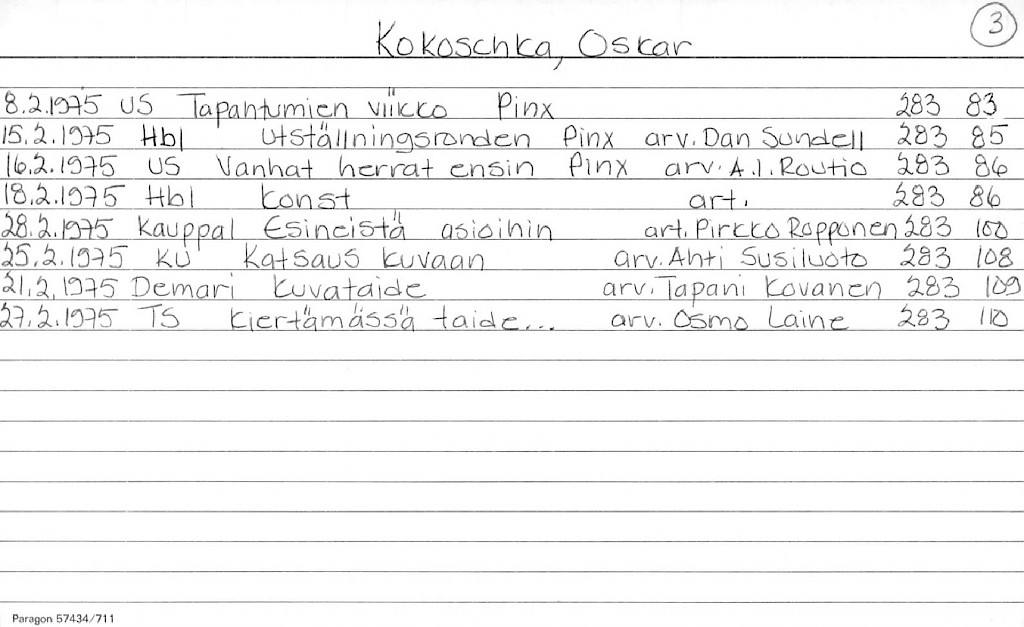 3
Kokoschka, Oskar
8.2.1975 US Tapahtumien viikko Pinx 283 83
15.2.1975 Hbl Utställningsronden Pinx arv. Dan Sundell 283 85
16.2.1975 US Vanhat herrat ensin Pinx arv. A.I. Routio 283 86
18.2.1975 Hbl Konst art. 283 86
28.2.1975 Kauppal Esineistä asioihin art. Pirkko Ropponen 283 100
25.2.1975 KU Katsaus kuvaan arv. Ahti Susiluoto 283 108
21.2.1975 Demari Kuvataide arv. Tapani Kovanen 283 109
27.2.1975 TS Kiertämässä taide... arv. Osmo Laine 283 110
Paragon 57434/711